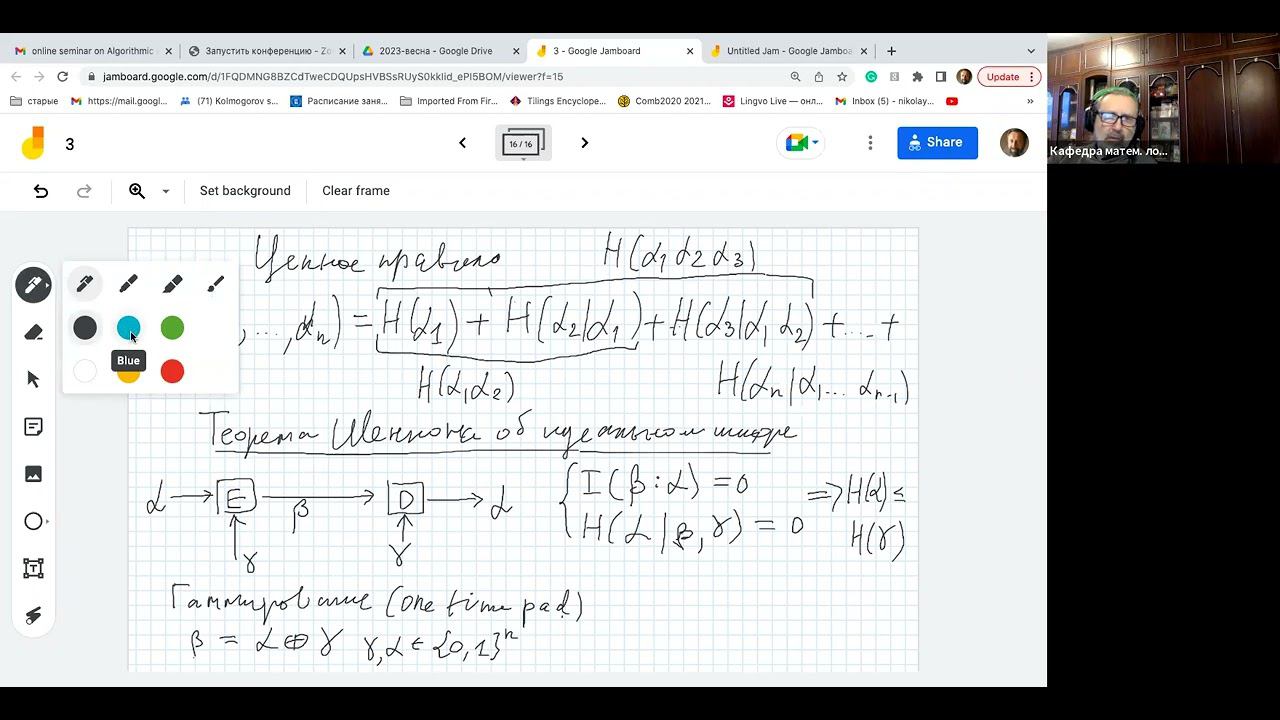 online seminar on Algorithmic
Запустить конференцию - Zo
2023-весна - Google Drive
3 - Google Jamboard
Untitled Jam - Google Jamboa
jamboard.google.com/d/1FQDMNG8BZCdTweCDQUpsHVBSsRUyS0kkIid_ePI5BOM/viewer?f=15
Update
старые
https://mail.googl...
(71) Kolmogorov s...
Расписание заня...
Imported From Fir...
Tilings Encyclope...
Comb2020 2021...
Lingvo Live — онл...
Inbox (5) - nikolay...
»
3
16 / 16
Share
Set background
Clear frame
Blue
Кафедра матем. ло...
Цепное правило H(α1 α2 α3)
, ..., αn) = H(α1) + H(α2|α1) + H(α3|α1 α2) + ... +
H(α1 α2) H(αn|α1... αn-1)
Теорема Шеннона об идеальном шифре
α → E → D → α { I(β : α) = 0 => H(α) ≤
β { H(α|β, γ) = 0 H(γ)
γ γ
Гаммирование (one time pad)
β = α ⊕ γ γ, α ∈ {0, 1}ⁿ